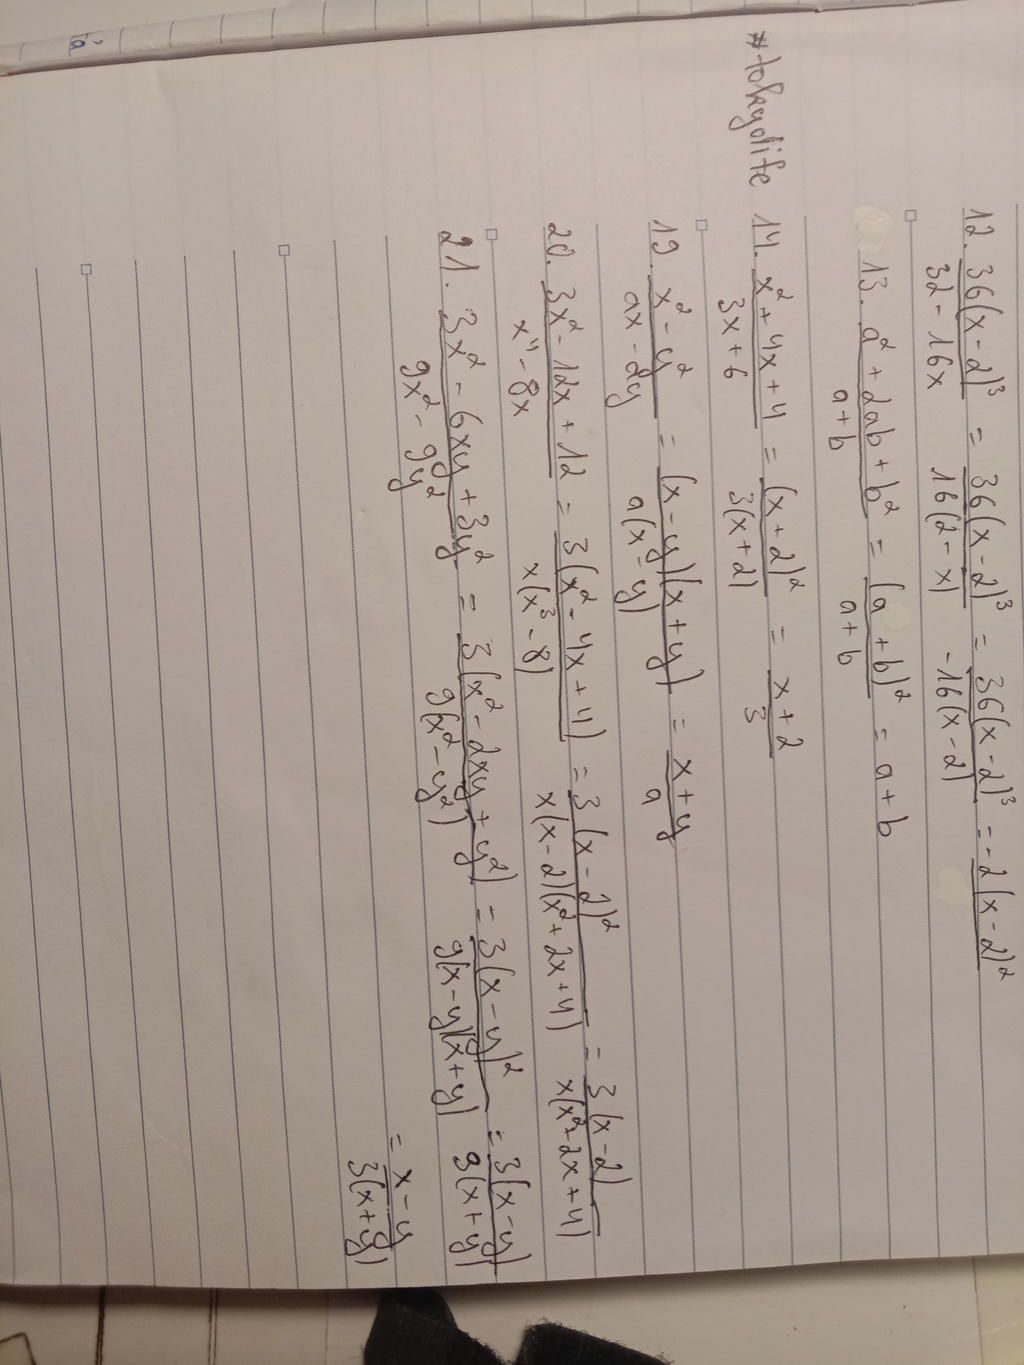 12. 36(x-2)³ / 32-16x = 36(x-2)³ / 16(2-x) = 36(x-2)³ / -16(x-2) = -2(x-2)²
13. a²+2ab+b² / a+b = (a+b)² / a+b = a+b
#tokyolife 14. x²+4x+4 / 3x+6 = (x+2)² / 3(x+2) = x+2 / 3
19. x²-y² / ax-ay = (x-y)(x+y) / a(x-y) = x+y / a
20. 3x²-12x+12 / x⁴-8x = 3(x²-4x+4) / x(x³-8) = 3(x-2)² / x(x-2)(x²+2x+4) = 3(x-2) / x(x²+2x+4)
21. 3x²-6xy+3y² / 9x²-9y² = 3(x²-2xy+y²) / 9(x²-y²) = 3(x-y)² / 9(x-y)(x+y) = 3(x-y) / 9(x+y)
= x-y / 3(x+y)